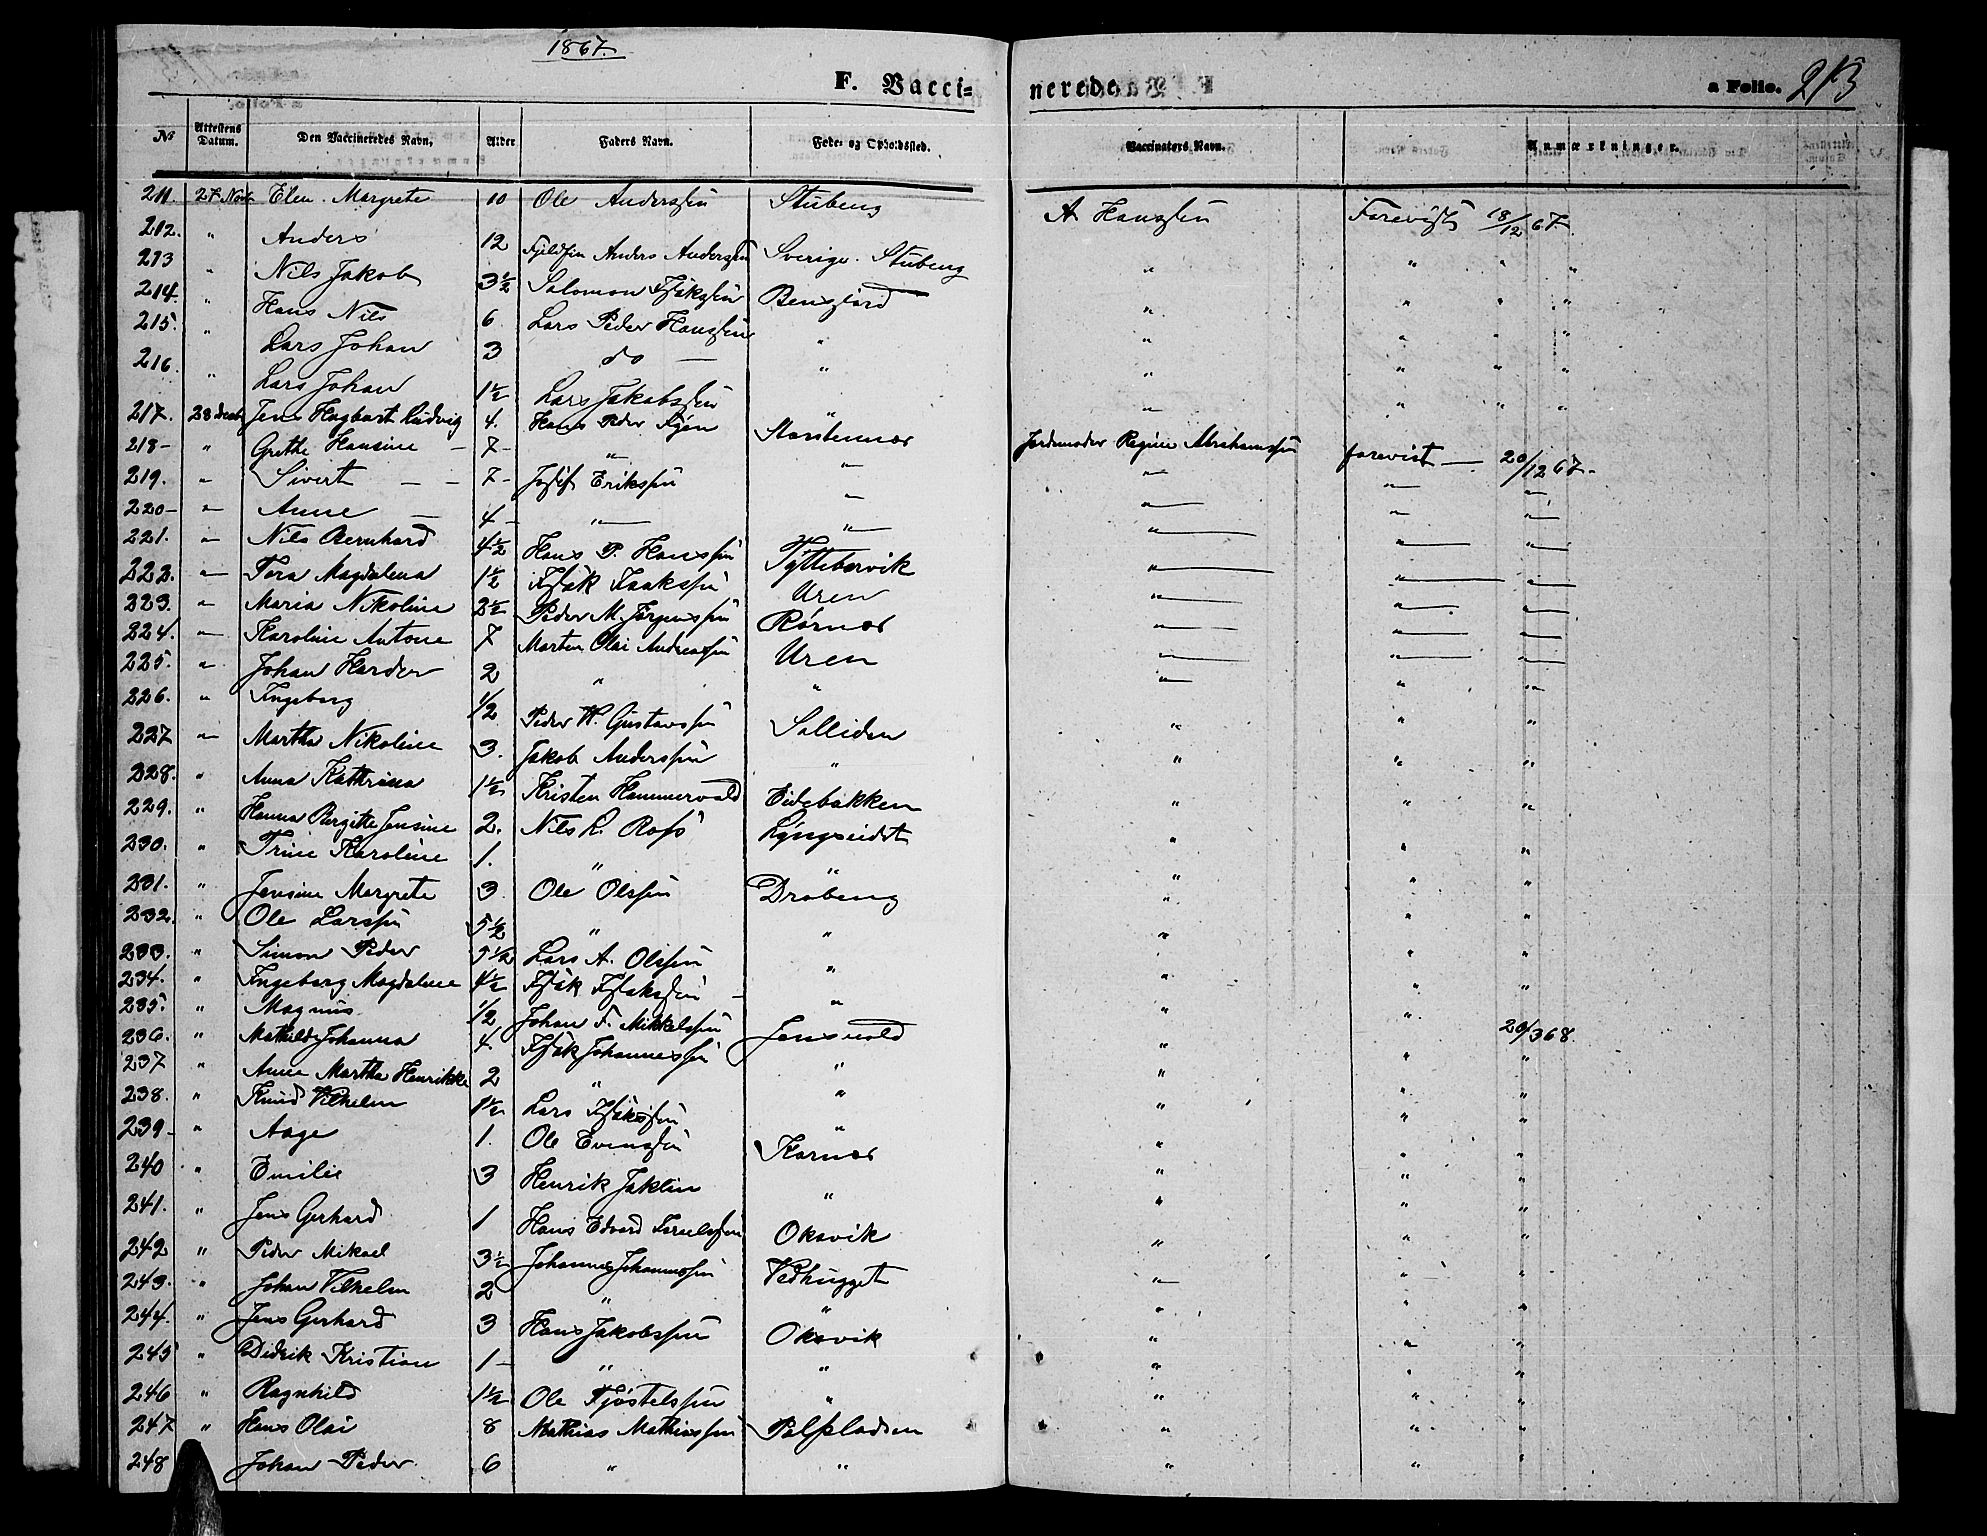 1867.
F. Vacci= nerede a Folio. 213
No Attestens Datum. Den Vaccineredes Navn. Alder Faders Navn. Føde- og Opholdssted. Vaccinators Navn. Anmærkninger.
211. 27 Novb Elen Margrete 10 Ole Anderssen Stubeng A. Hanssen Forevist 18/12 67.
212. " Anders 12 Fjeldfin Anders Anderssen Sverige. Stubeng " " " "
213 " Nils Jakob 3½ Salomon Isaksen Bensjord " " " "
214. " Hans Nils 6 Lars Peder Hanssen " " " " "
215. " Lars Johan 3 do — " " " " "
216. " Lars Johan 1½ Lars Jakobssen " " " " "
217. 28 Decb Jens Hagbart Ludvig 4. Hans Peder Figen Storstennes Jordemoder Regine Abrahamssen forevist — 20/12 67.
218 — " Grethe Hansine — 7 — " " " " "
219. " Sivert — — 7 — Josef Erikssen " " " "
220 — " Anne — 4 — " " " " "
221. " Nils Bernhard 4½ Hans P. Hanssen Tyttebærvik " " "
222. " Tora Magdalena 1½ Isak Isakssen Uren " " "
223. " Maria Nikoline 2½ Peder M. Jørgenssen Rørnes " " "
224. " Karoline Antone 7 Morten Olai Andreassen Uren " " "
225. " Johan Harder 2 " " " " "
226. " Ingeborg 1/2 Peder W. Gustavssen Solliden " " "
227 " Martha Nikoline 3. Jakob Anderssen " " " "
228. " Anna Kathrina 1½ Kristen Hammervold Eidebakken " " "
229. " Hanna Birgitte Jensine 2. Nils L. Ross Lyngseidet " " "
230. " Trine Karoline 1. " " " " "
231. " Jensine Margrete 3 Ole Olssen Drabeng " " "
232. " Ole Larssen 5½ " " " " "
233. " Simon Peder 5½ Lars A. Olssen " " " "
234. " Ingeborg Magdalene 4½ Isak Isakssen " " " "
235. " Magnus 1/2 Johan F. Mikkelssen Jensvold " "
236. " Mathilde Johanna 4. Isak Johannessen " " " 20/3 68.
237 " Anne Martha Henrikke 2 " " " " "
238. " Knud Vilhelm 1½ Lars Isakssen " " " "
239 — " Aage 1. Ole Evenssen Karnes " " "
240 " Emilie 3 Henrik Jaklin " " " "
241. " Jens Gerhard 1 Hans Edvard Israelssen Oksvik " " "
242 " Peder Mikael 3½ Johannes Johannessen Vedhugget " " "
243. " Johan Vilhelm 2 " " " " "
244. " Jens Gerhard 3 Hans Jakobssen Oksvik " " "
245 " Didrik Kristian 1 — " " " " "
246 " Ragnhild 1½ Ole Kjøstelssen " " " "
247 " Hans Olai 8 Mathias Mathiassen Polspladsen " " "
248 " Johan Peder 6 " " " "